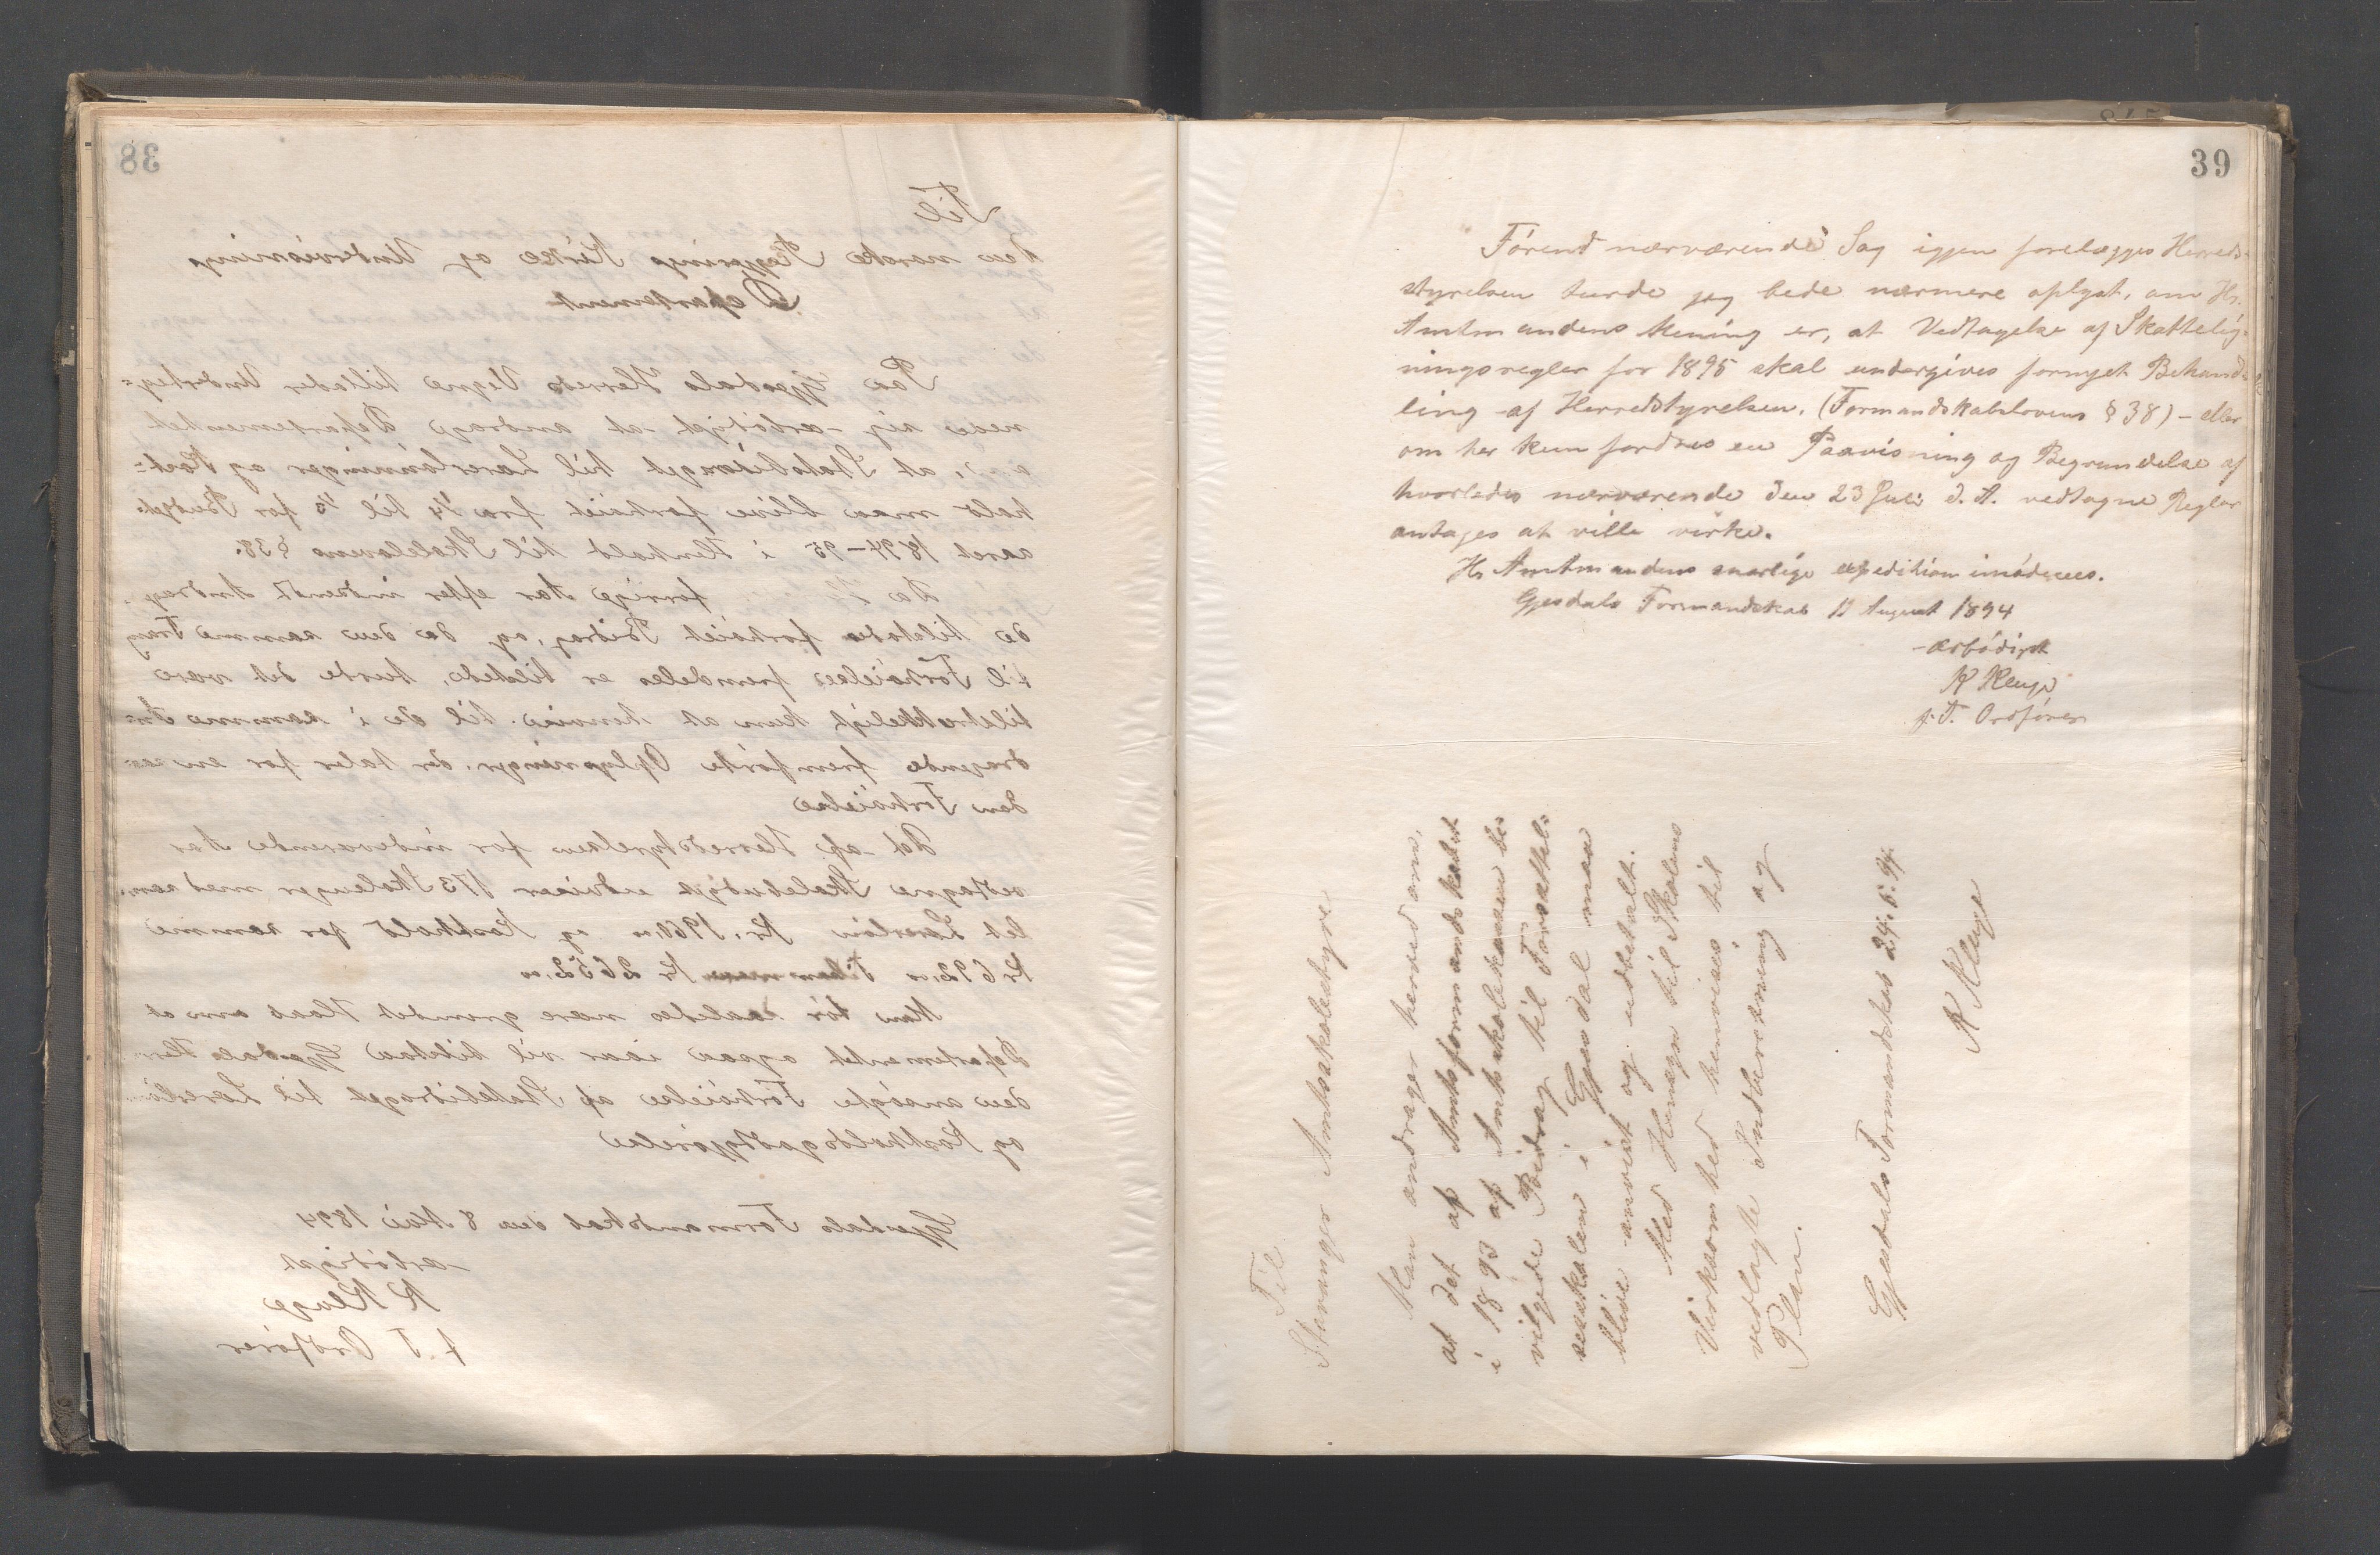 38
Til
den norske Regjerings Kirke og Undervisnings
Departement
Paa Gjesdals Herreds Vegne tillader Underteg=
nede sig ærbødigst at andrage Departementet
om, at Statsbidraget til Lærerlønninger og Kost=
hold maa blive forhøiet fra 1/4 til 1/3 for Budget=
aaret 1894-95 i Henhold til Skolelovens § 38.
Da forrige Aar efter indsendt Andrag.
de tilstodes forhøiet Bidrag, og da den samme Trang
til Forhøielse fremdeles er tilstede, turde det være
tilstrækkeligt kun at henvise til de i samme An=
dragende fremførte Oplysninger, der taler for en saa=
dan Forhøielse
Det af Herredstyrelsen for indeværende Aar
vedtagne Skolebudget udviser 173 Skoleuger med sam.
let Lærerløn Kr. 1960,00 og Kosthold for samme
Kr 692,00 Tilsammen Kr 2652,00
Man tør saaledes nære grundet Haab om at
Departementet ogsaa iaar vil tilstaa Gjesdals Her=
den ansøgte Forhøielse af Statsbidraget til Lærerløn
og Kostholdsgodtgjørelse
Gjesdals Formandskab den 8 Mai 1894
ærbødigst
K Kluge
f. T Ordfører
39
Førend nærværende Sag igjen forelægges Herreds-
styrelsen turde jeg bede nærmere oplyst, om Hr.
Amtmandens Mening er, at Vedtagelse af Skattelig-
ningsregler for 1895 skal undergives fornyet Behand-
ling af Herredstyrelsen, (Formandskabslovens § 38) - eller
om her kun fordres en Paavisning og Begrundelse af
hvorledes nærværende den 23 Juli d. A. vedtagne Regler
antages at ville virke.
Hr Amtmandens snarlige expedition imødesees.
Gjesdals Formandskab 11 August 1894
ærbødigst
K Kluge
f. T. Ordfører
Til
Stavanger Amtsskolestyre
Man andrager herved om,
at det af Amtsformandskabet
i 1893 af Amtsskolekassen be
vilgede Bidrag til Fortsættel-
sesskolen i Gjesdal maa
blive anvist og udbetalt.
Med Hensyn til Skolens
Virksomhed henvises til
vedlagte Indberetning og
Plan.
Gjesdals Formandskab 24. 5. 94.
K Kluge